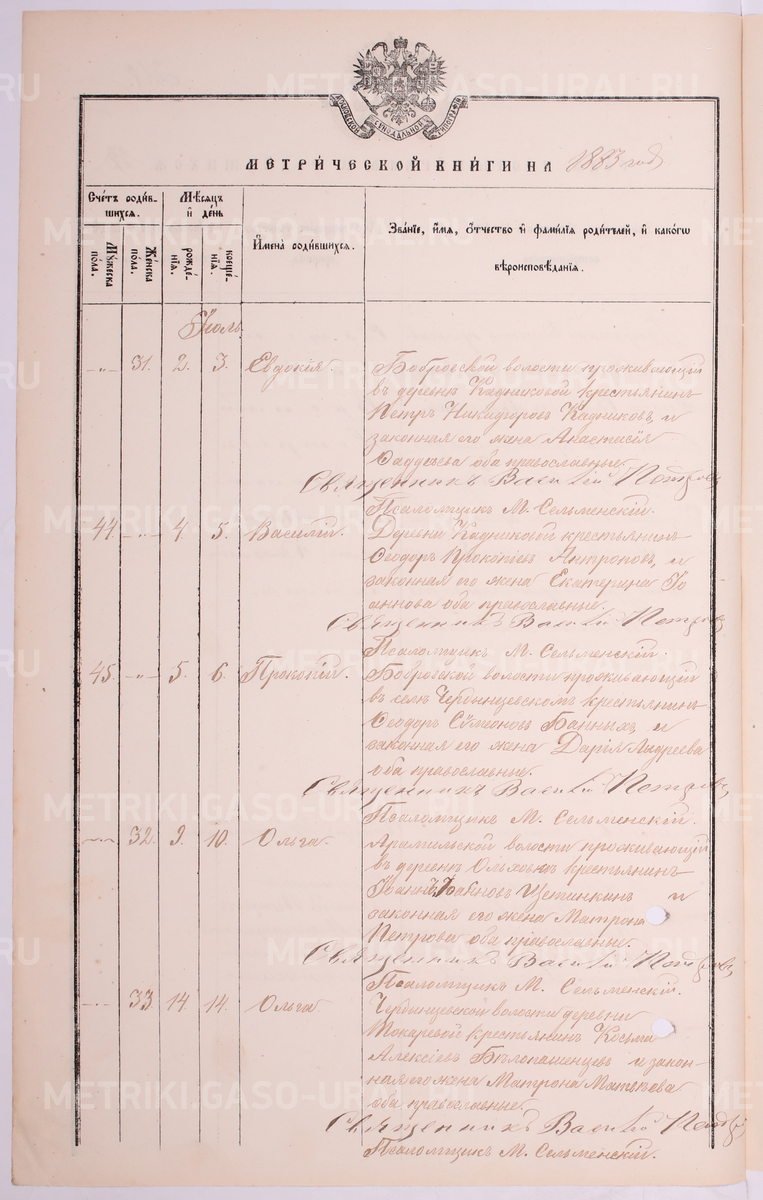 МОСКОВСКОЙ СѴНОДАЛЬНОЙ ТИПОГРАФІИ
МЕТРИ́ЧЕСКОЙ КНИ́ГИ НА 1883 годъ
Счетъ роди́в-
шихся.
Мѣсяцъ
и҆ де́нь
Мꙋжеска
пола.
Же́нска
пола.
рожде́-
нїѧ.
креще́-
нїѧ.
И҆мена̀ роди́вшихся.
Зва́нїе, и҆́мѧ, о҆́тчество и҆ фами́лїѧ роди́телей, и҆ како́гѡ
вѣроисповѣ́данїѧ.
Іюль
-„- 31. 2. 3. Евдокія. Бобровской волости проживающій
въ деревнѣ Кадниковой крестьянинъ
Петръ Никифоровъ Кадниковъ, и
законная его жена Анастасія
Фаддеева оба православные.
Священникъ Василій Петровъ
Псаломщикъ М. Сельменскій.
44. -„- 4. 5. Василій. Деревни Кадниковой крестьянинъ
Ѳеодоръ Прокопіевъ Антроповъ, и
законная его жена Екатерина Іо
аннова оба православные.
Священникъ Василій Петровъ
Псаломщикъ М. Сельменскій.
45. -„- 5. 6. Прокопій. Бобровской волости проживающій
въ селѣ Чердынцевскомъ крестьянинъ
Ѳеодоръ Сѵмеоновъ Банныхъ, и
законная его жена Дарія Андреева
оба православные.
Священникъ Василій Петровъ
Псаломщикъ М. Сельменскій.
-„- 32. 9. 10. Ольга. Арамильской волости проживающій
въ деревнѣ Ольховкѣ крестьянинъ
Іоаннъ Щетинкинъ и
законная его жена Матрона
Петрова оба православные.
Священникъ Василій Петровъ
Псаломщикъ М. Сельменскій.
-„- 33. 14. 14. Ольга Чердынцевской волости деревни
Токаревой крестьянинъ Косьма
Алексіевъ Бѣлопашенцевъ и закон-
ная его жена Матрона Матѳеева
оба православные.
Священникъ Василій Петровъ
Псаломщикъ М. Сельменскій.
METRIKI.GASO-URAL.RU